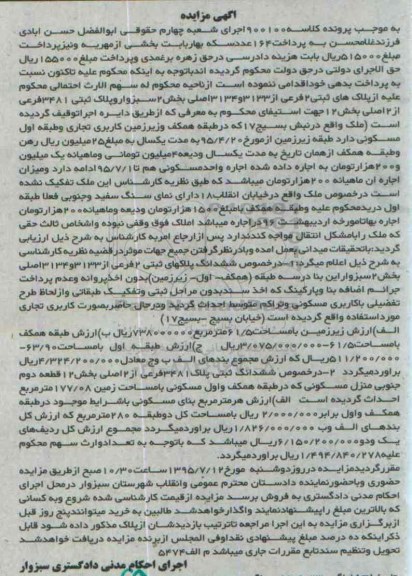 آگهی مزایده
به موجب پرونده کلاسه ۹۰۰۱۰۰ اجرای شعبه چهارم حقوقی ابوالفضل حسن آبادی
فرزند غلامحسن به پرداخت ۱۶۴ عدد سکه بهار بابت بخشی از مهریه و نیز پرداخت
مبلغ ۵۱۵۰۰۰ ریال بابت هزینه دادرسی در حق زهره برغمدی و پرداخت مبلغ ۱۵۵۰۰۰ ریال
حق الاجرای دولتی در حق دولت محکوم گردیده اند با توجه به اینکه محکوم علیه تاکنون نسبت
به پرداخت بدهی خود اقدامی ننموده است از ناحیه محکوم له سهم الارث احتمالی محکوم
علیه از پلاک های ثبتی ۲ فرعی از ۳۱۳۳ و ۳۱۳۴ اصلی بخش ۲ سبزوار و پلاک ثبتی ۳۴۸۱ فرعی
از ۲ اصلی بخش ۱۲ جهت استیفای محکوم به معرفی که از طریق دایره اجرا توقیف گردیده
است (ملک واقع در نبش بسیج ۱۷ که در طبقه همکف و زیرزمین کاربری تجاری و طبقه اول
مسکونی دارد طبقه زیرزمین از مورخ ۹۵/۴/۲۰ به مدت یکسال به مبلغ ۲۵ میلیون ریال رهن
وطبقه همکف از همان تاریخ به مدت یکسال ودیعه ۴ میلیون تومانی و ماهیانه یک میلیون
و ۲۰۰ هزار تومان به اجاره داده شده اجاره واحد مسکونی هم تا ۹۵/۷/۱ ادامه دارد و میزان
اجاره آن ماهیانه ۲۰۰ هزار تومان میباشد که طبق نظریه کارشناس این ملک تفکیک نشده
است درخصوص ملک واقع در خیابان انقلاب ۱۸ دارای نمای سنگ سفید و جنوبی فعلا طبقه
اول در ید محکوم علیه و طبقه همکف با مبلغ ۱۵۰۰ هزار تومان ودیعه و ماهیانه ۲۰۰ هزار تومان
اجاره بها تا مورخه اردیبهشت ۹۶ در اجاره میباشد املاک فوق وقفی نبوده و اشخاص ثالث حقی
که ملک را با مشکل انتقال مواجه کند ندارد پس از ارجاع امر به کارشناس به شرح ذیل ارزیابی
گردید: با تحقیقات میدانی بعمل آمده و با در نظر گرفتن جمیع جهات موثر در قضیه نظریه کارشناسی
به شرح ذیل اعلام میگردد: ۱-درخصوص ششدانگ پلاکهای ثبتی ۲ فرعی از ۳۱۳۳ و ۳۱۳۴ اصلی
بخش ۲ سبزوار این بنا در سه طبقه (همکف- اول- زیرزمین) بدون اخذ پروانه و عدم پرداخت
جرائم اضافه بنا و پارکینگ که اخذ سند بدون مراحل ثبتی و تفکیک طبقاتی و از لحاظ طرح
تفضیلی با کاربری مسکونی و تراکم متوسط احداث گردید و در حال حاضر بصورت کاربری تجاری
مورد استفاده واقع گردیده است (خیابان بسیج -بسیج ۱۷)
الف) ارزش زیرزمین با مساحت ۶۱/۵ مترمربع ۷۳۸۰۰۰۰۰۰ ریال ب) ارزش طبقه همکف
بامساحت ۶۱/۵-۳/۰۷۵/۰۰۰/۰۰۰ ریال ج) ارزش طبقه اول بامساحت ۶۳/۹۰-
۵۱۱/۲۰۰/۰۰۰ ریال که ارزش مجموع بندهای الف ب وج معادل ۴/۳۲۴/۲۰۰/۰۰۰ ریال
برآورد میگردد ۲-درخصوص ششدانگ ثبتی پلاک ۳۴۸۱ فرعی از ۲ اصلی بخش ۱۲ قطعه دوم
جنوبی منزل مسکونی که در طبقه همکف و اول مسکونی بامساحت زمین ۱۷۷/۰۸ مترمربع
احداث گردیده است الف) ارزش هر مترمربع بنای مسکونی با شرایط موجود در طبقه
همکف و اول برابر ۲/۰۰۰/۰۰۰ ریال بامساحت کل دو طبقه ۲۸۰ مترمربع که ارزش کل
بندهای الف وب ۱/۸۲۶/۰۰۰/۰۰۰ ریال برآورد میگردد مجموع ارزش کل ردیف های
یک و دو ۶/۱۵۰/۲۰۰/۰۰۰ ریال میباشد که با توجه به تعداد وارث سهم محکوم
علیه ۱/۴۹۴/۸۴۰/۲۷۸ ریال برآورد میگردد.
مقرر گردید مزایده در روز دوشنبه مورخ ۱۳۹۵/۷/۱۲ ساعت ۱۰/۳۰ صبح از طریق مزایده
حضوری و با حضور نماینده دادستان محترم عمومی و انقلاب شهرستان سبزوار در محل اجرای
احکام مدنی دادگستری به فروش برسد مزایده از قیمت کارشناسی شده شروع و به کسانی
که بالاترین مبلغ را پیشنهاد نمایند واگذار خواهد شد طالبین به خرید میتوانند پنج روز قبل
از برگزاری مزایده به این اجرا مراجعه تا ترتیب بازدیدشان از پلاک مذکور داده شود قابل
ذکر اینکه ده درصد مبلغ پیشنهادی نقدا و فی المجلس از برنده مزایده دریافت خواهد شد
تحویل و تنظیم سند تابع مقررات جاری میباشد م الف ۵۴۷۴
اجرای احکام مدنی دادگستری سبزوار